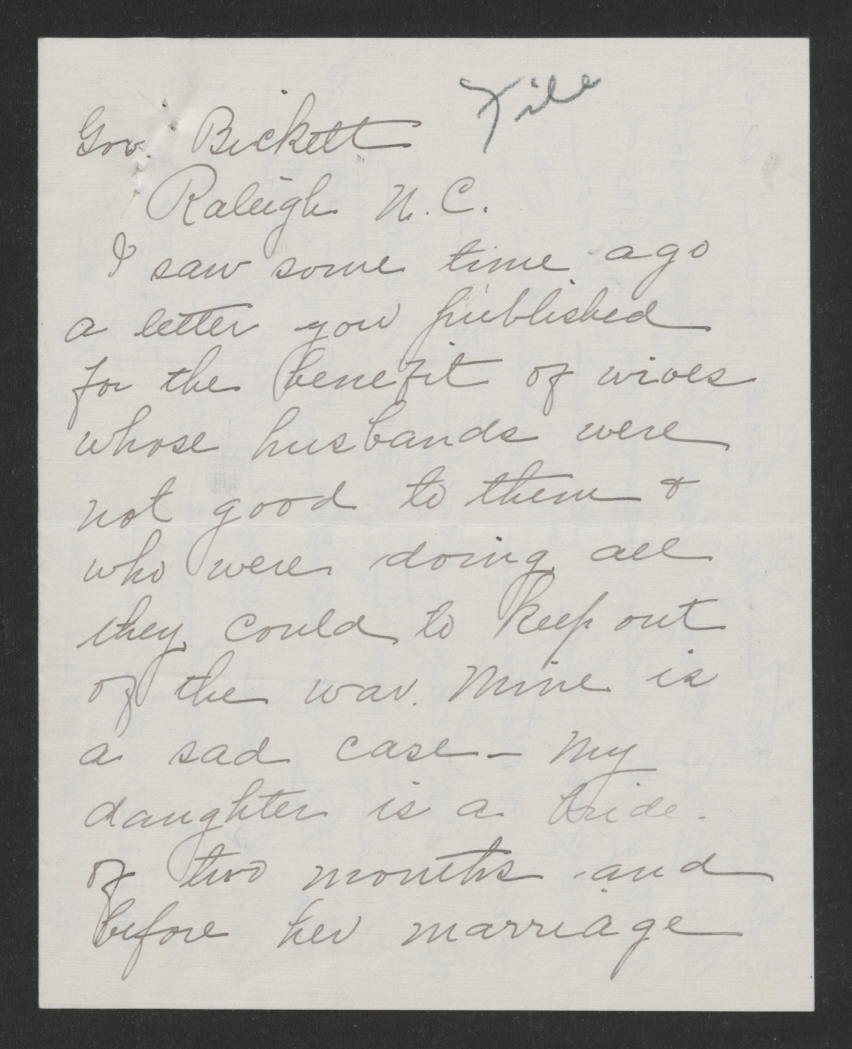 File
Gov. Bickett
Raleigh N.C.
I saw some time ago
a letter you published
for the benefit of wives
whose husbands were
not good to them &
who were doing all
they could to keep out
of the war. Mine is
a sad case - My
daughter is a bride.
of two months and
before her marriage